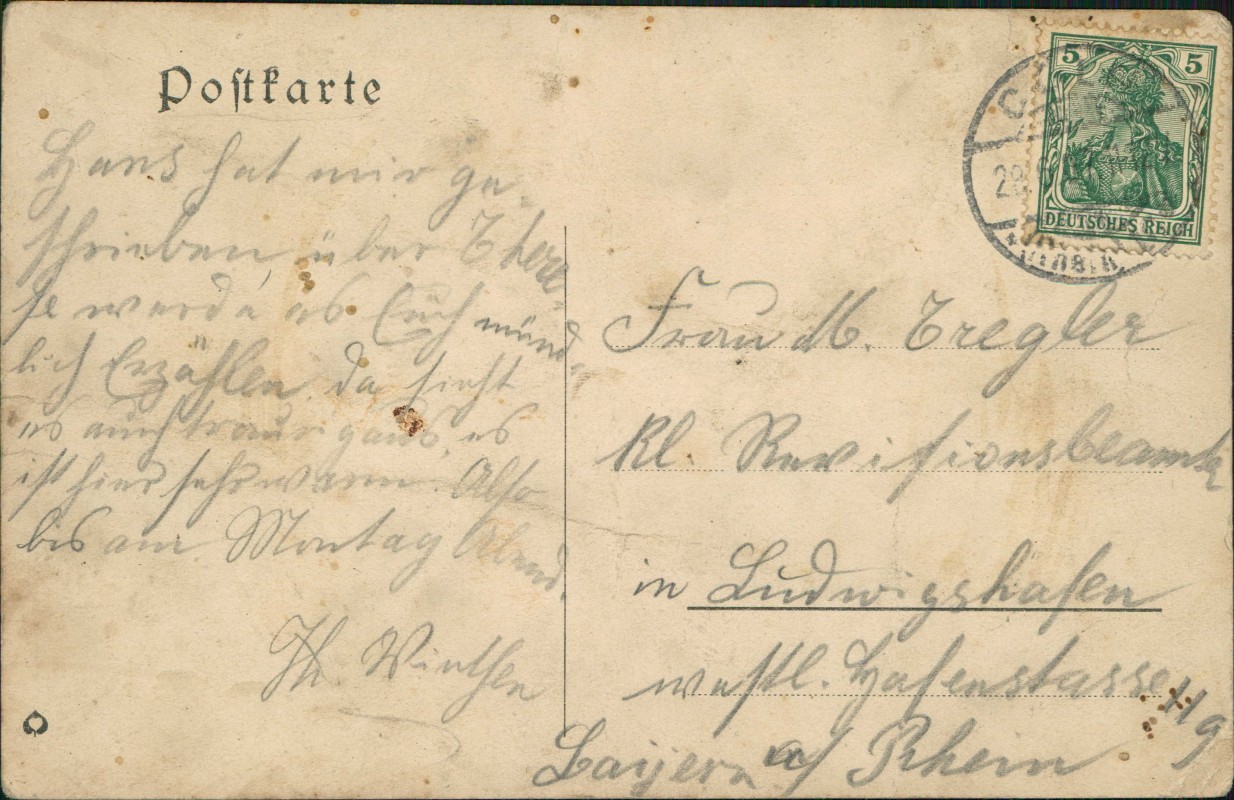 Postkarte
Hans hat mir ge-
schrieben, über There-
se werde es Euch münd-
lich Erzählen, da sieht
es auch traurig aus, es
ist hier sehr warm. Also
bis am Montag Abend.
Th.
5 5
DEUTSCHES REICH
Frau M. Tregler
kl. Revisionsbeamte
in Ludwigshafen
westl. Hafenstasse
Bayern a/ Rhein